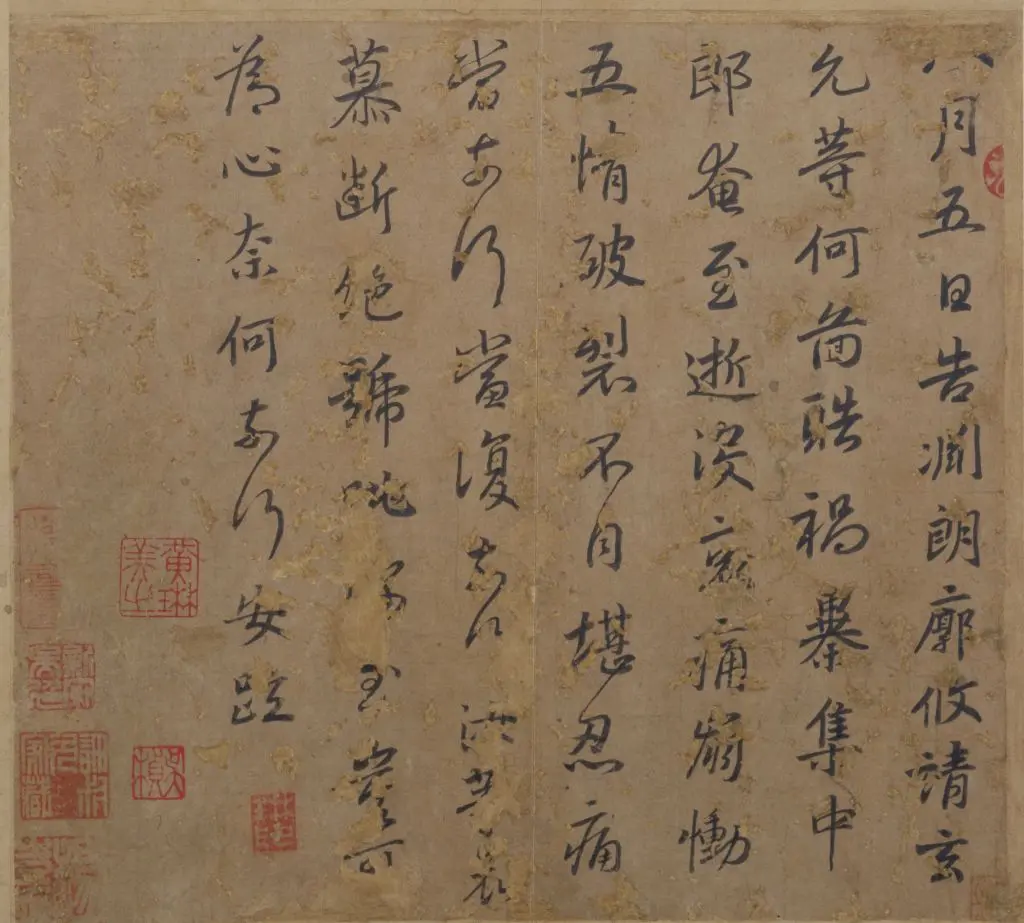 八月五日告淵朗廓攸靖玄
允等何啚酷禍暴集中
郎奄至逝没哀痛崩慟
五情破裂不自堪忍痛
當奈何當復奈何汝等哀
慕斷絕號咷深至豈可
為心奈何奈何安疏
黃琳美之
吳楨